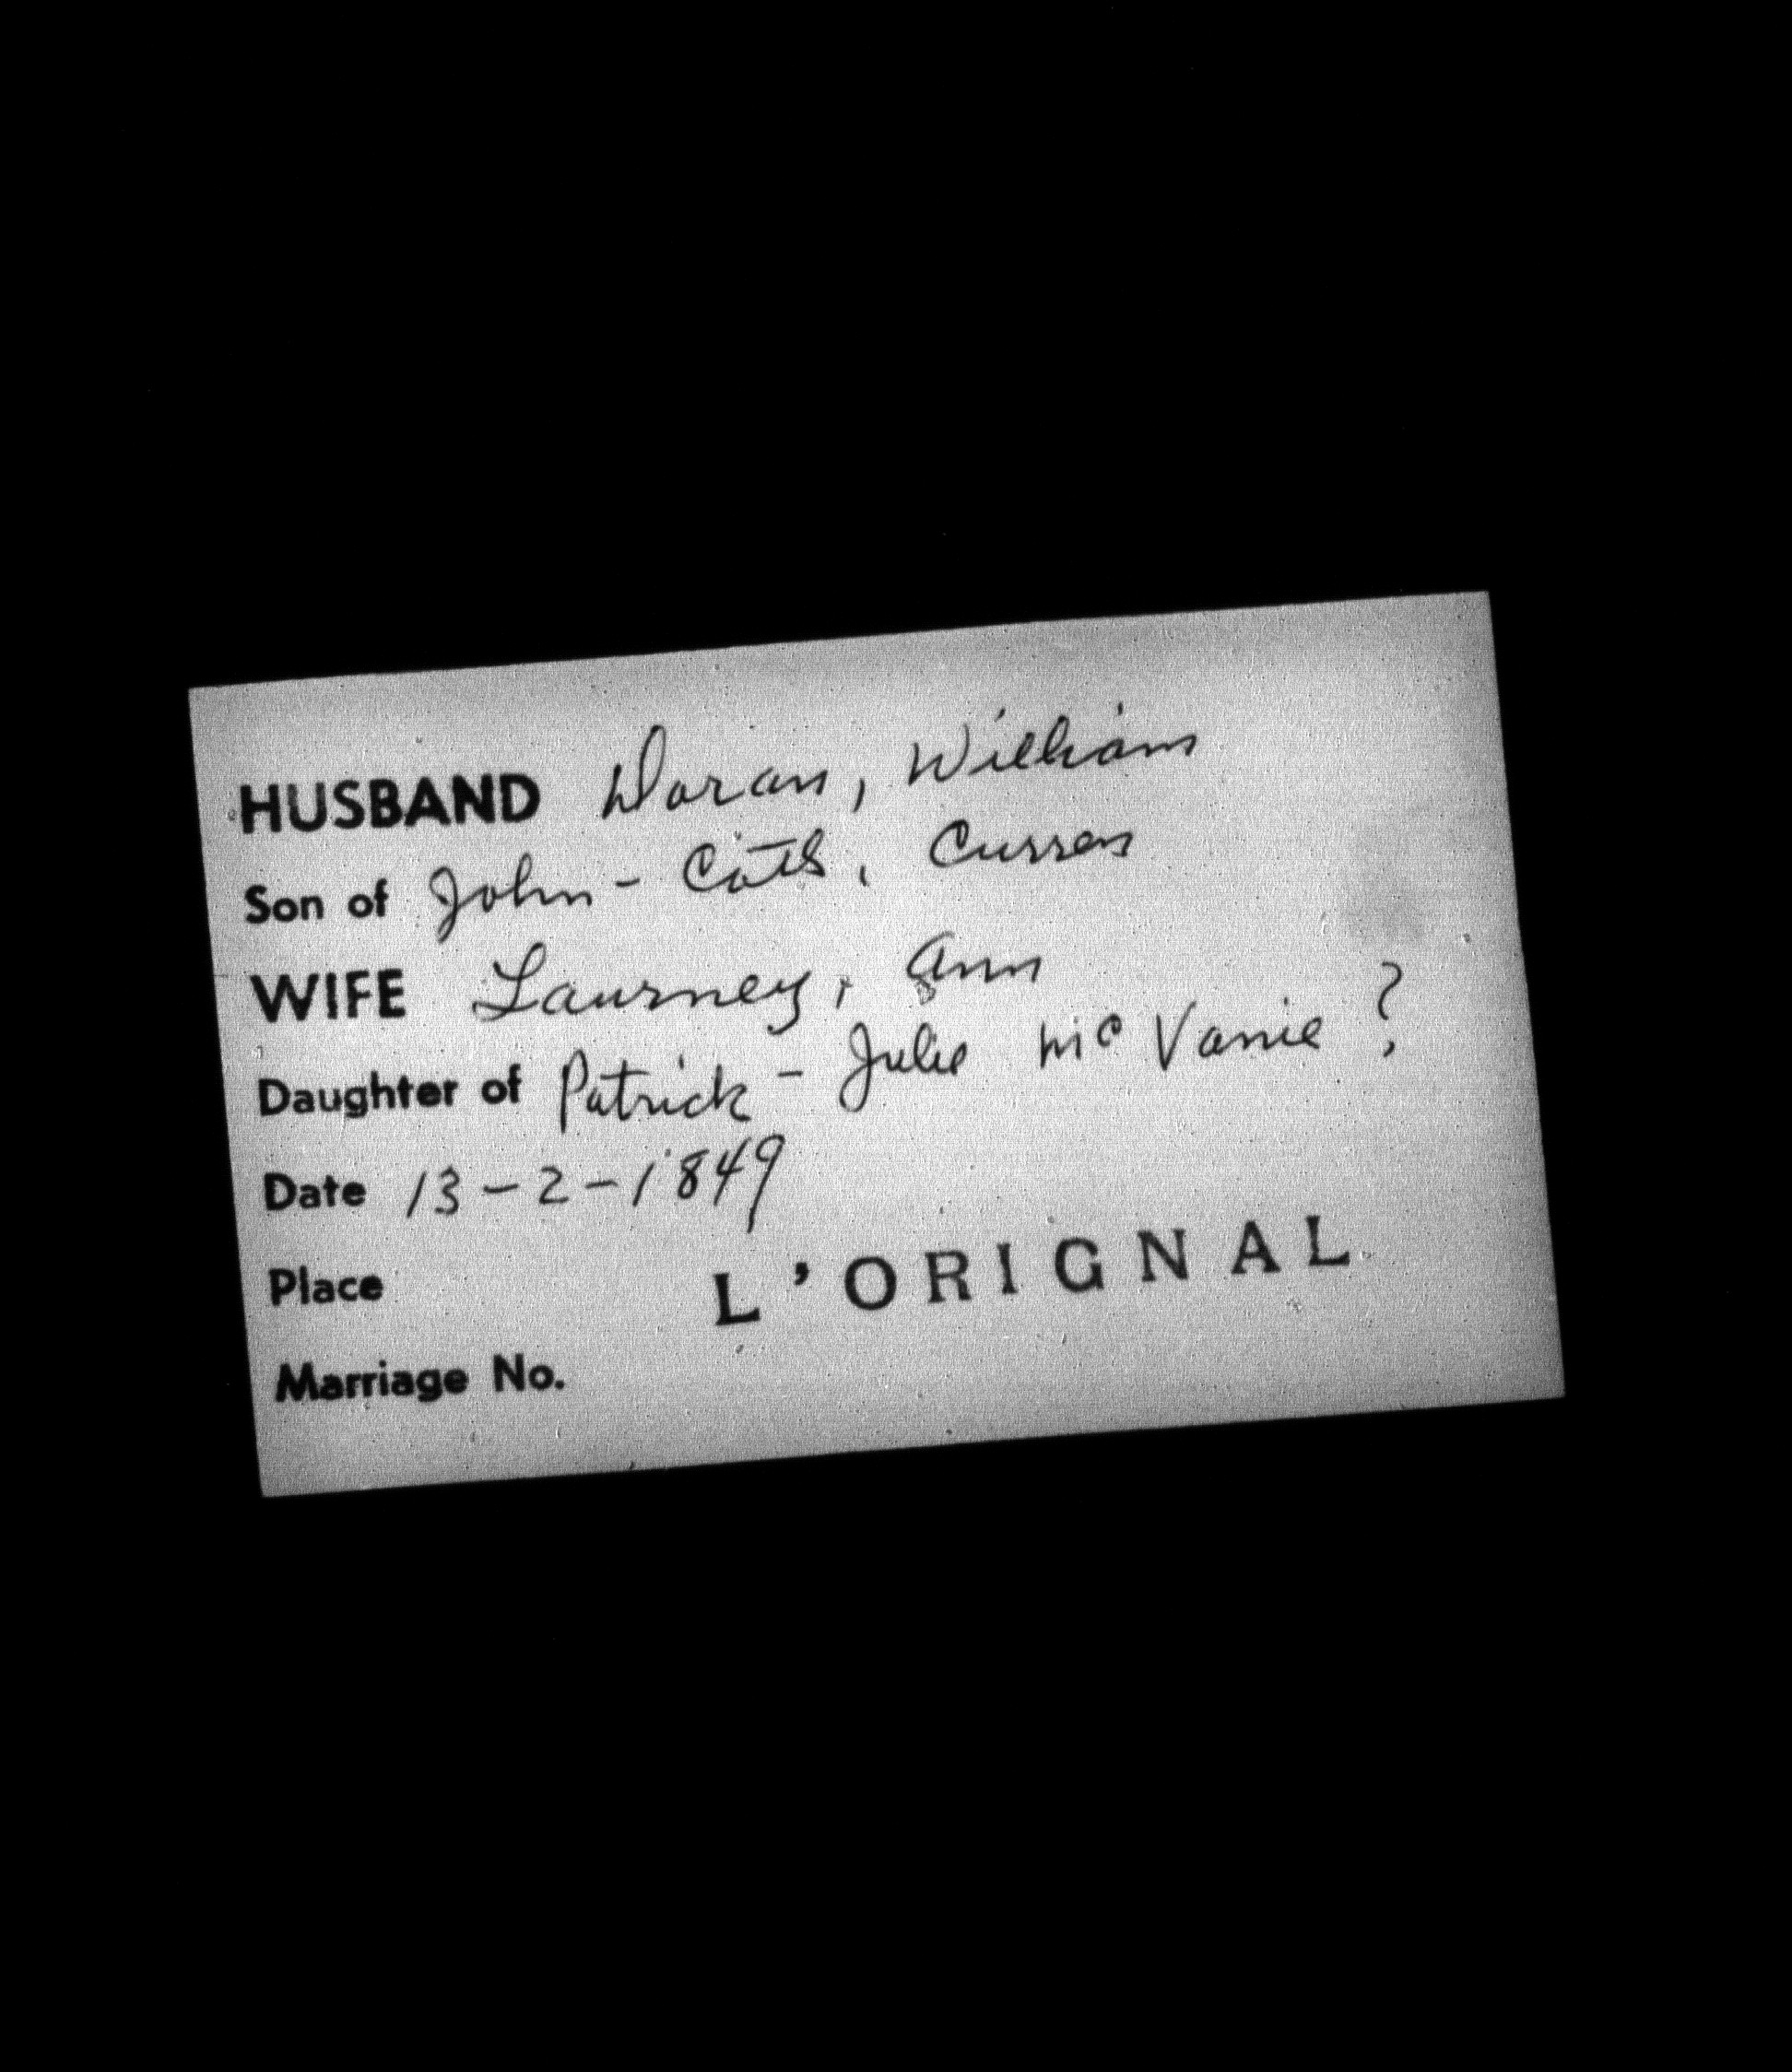 HUSBAND Doran, William
Son of John - Cath, Curren
WIFE Laurney, Ann
Daughter of Patrick - Julie McVanie ?
Date 13-2-1849
Place L'ORIGNAL
Marriage No.